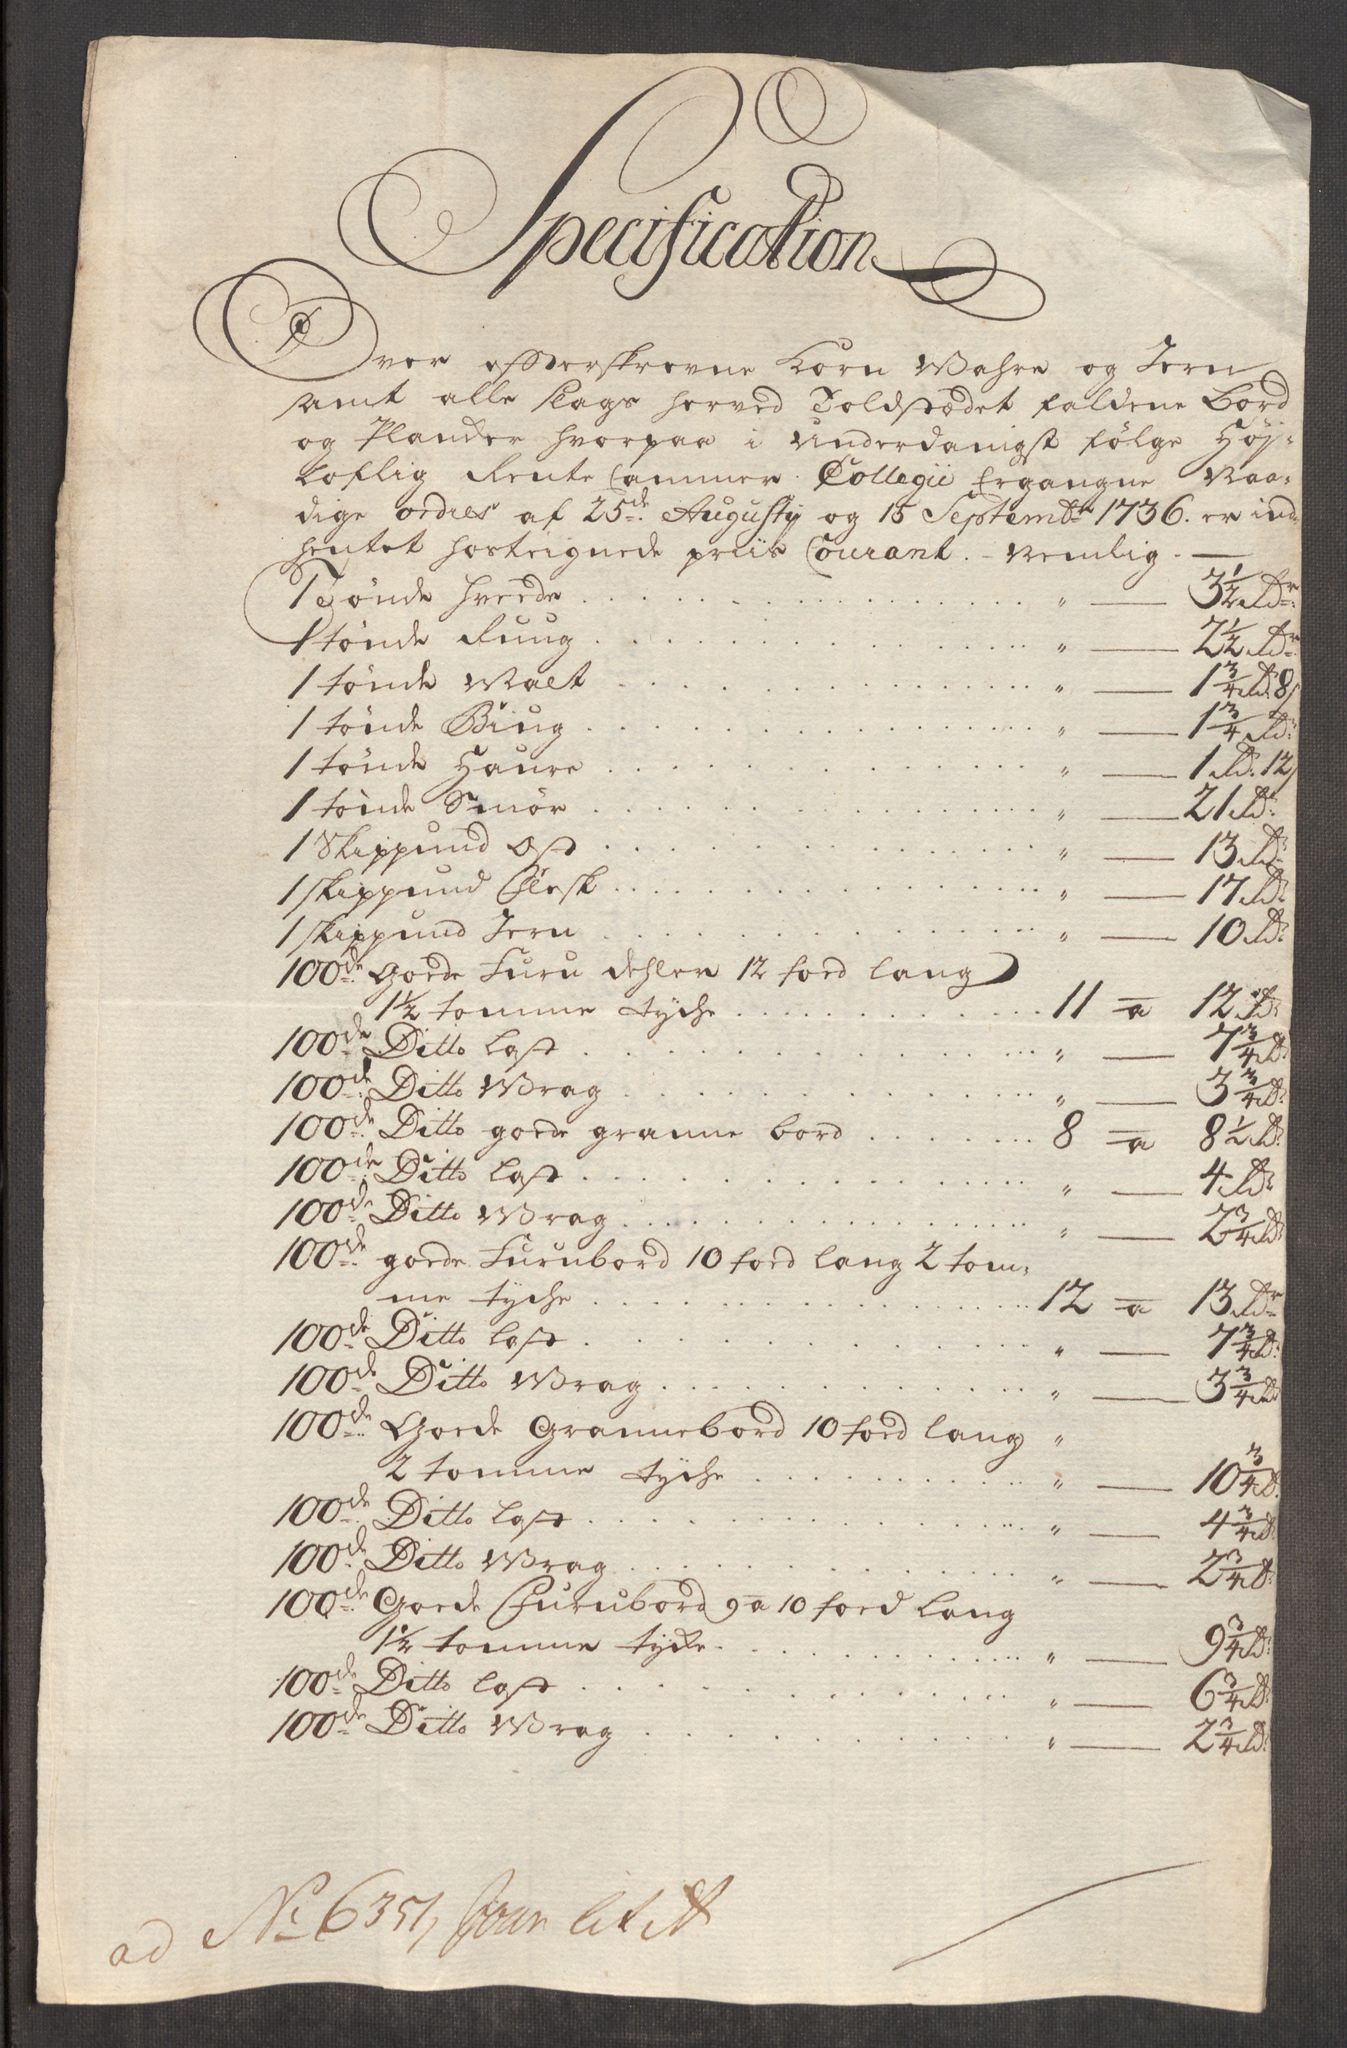 Specification
Over efterskrevne Korn Wahre og Jern
samt alle slags herved Toldstædet faldene Bord
og Plancker hvorpaa i underdanigst følge Høj-
loflig Rente Cammer Collegii Ergangne Naa-
dige ordres af 25de Augusty og 15 Septembr 1736. er ind
hentet hosteignede priis Courant. Nemlig.
1 Tønde Hveede " 3 1/2 Rdr
1 tønde Ruug " 2 1/2 Rdr
1 tønde Malt " 1 3/4 Rd. 8 s
1 tønde Biug " 1 3/4 Rd
1 tønde Haure " 1 Rd. 12 s
1 tønde Smør " 21 Rd
1 Skippund Ost " 13 Rd
1 skippund Flesk " 17 Rd
1 skippund Jern " 10 Rd
100de Goede Furu dehler 12 foed lang
1 1/2 tomme tyche 11 a 12 Rd
100de Ditto Last " 7 3/4 Rd
100de Ditto Wrag " 3 3/4 Rd
100de Ditto goede granne bord 8 a 8 1/2 Rd
100de Ditto Last " 4 Rd
100de Ditto Wrag " 2 3/4 Rd
100de goede Furubord 10 foed lang 2 tom-
me tyche 12 a 13 Rdr
100de Ditto Last " 7 3/4 Rd
100de Ditto Wrag " 3 3/4 Rd
100de Goede Grannebord 10 foed lang "
2 tomme tyche " 10 3/4 Rd
100de Ditto Last " 4 3/4 Rd
100de Ditto Wrag " 2 3/4 Rd
100de Goede Furubord 9 a 10 foed Lang
1 1/2 tomme tycke " 9 3/4 Rd
100de Ditto Last " 6 3/4 Rd
100de Ditto Wrag " 2 3/4 Rd
ad No 6351, lit A